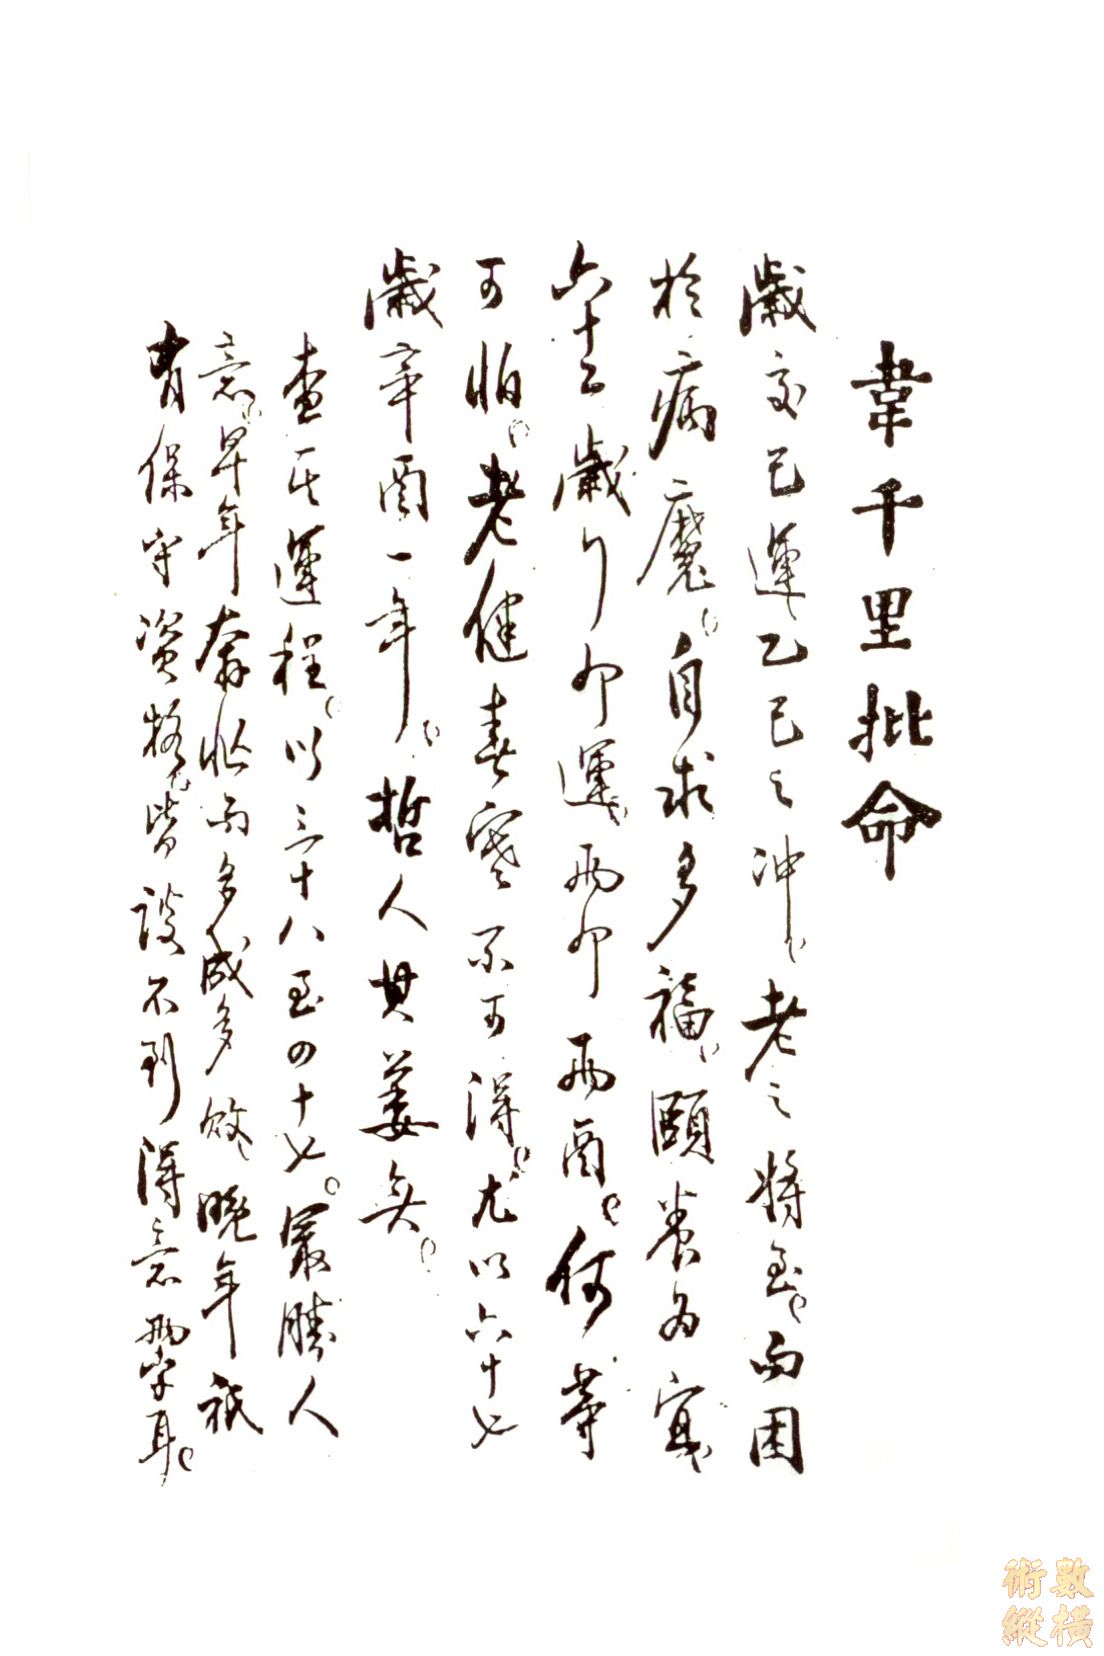 韋千里批命
歲交巳運乙巳之冲、老之將至、而困
於病魔、自求多福、頤養為宜、
六十二歲行卯運、兩卯兩酉、何等
可怕、老健春寒不可得、尤以六十七
歲辛酉一年、哲人其萎矣。
查其運程、以三十八至四十七。最勝人
意、早年奔忙而多成多敗、晚年祇
有保守資格、皆談不到得意兩字耳。
術數
縱橫